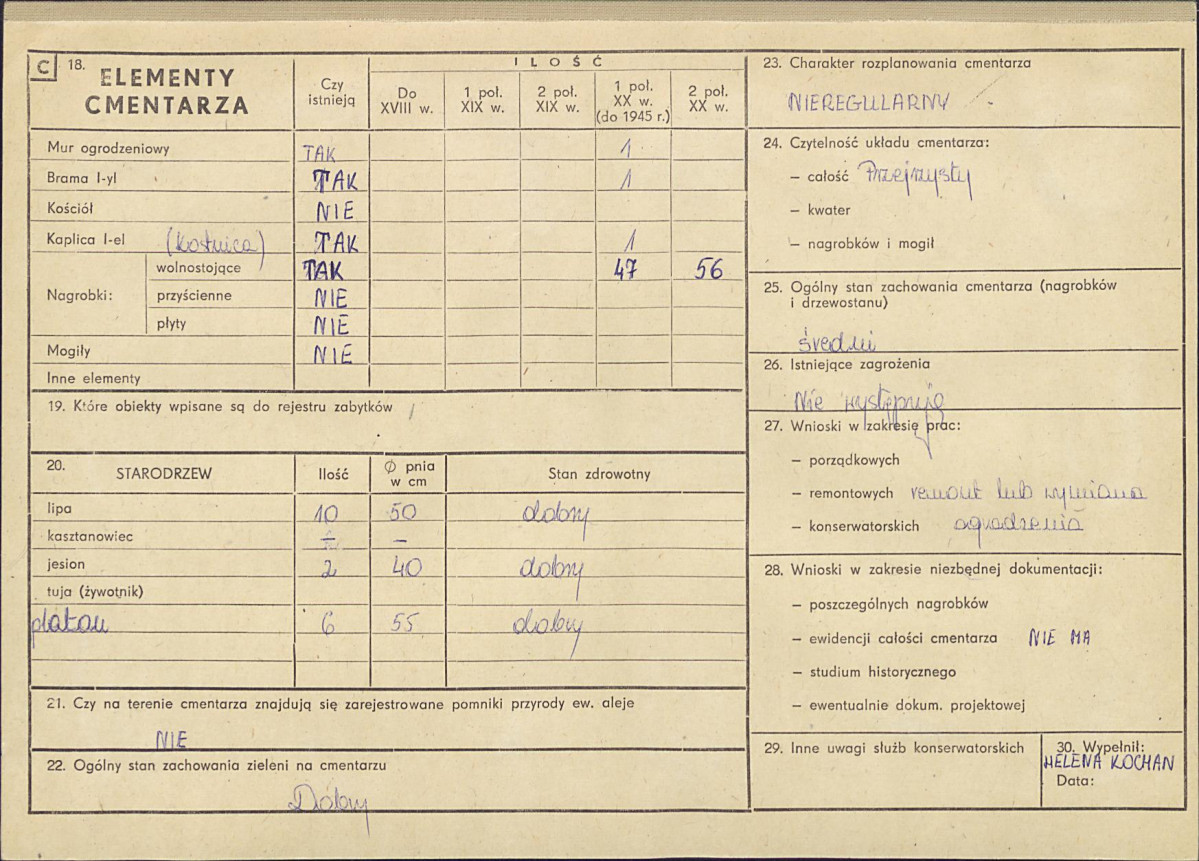 C 18. ELEMENTY CMENTARZA
Czy istnieją
ILOŚĆ
Do XVIII w.
1 poł. XIX w.
2 poł. XIX w.
1 poł. XX w. (do 1945 r.)
2 poł. XX w.
Mur ogrodzeniowy TAK 1
Brama I-yl TAK 1
Kościół NIE
Kaplica I-el (kostnica) TAK 1
Nagrobki:
wolnostojące TAK 47 56
przyścienne NIE
płyty NIE
Mogiły NIE
Inne elementy
19. Które obiekty wpisane są do rejestru zabytków
20. STARODRZEW Ilość Ø pnia w cm Stan zdrowotny
lipa 10 50 dobry
kasztanowiec – –
jesion 2 40 dobry
tuja (żywotnik)
platan 6 55 dobry
21. Czy na terenie cmentarza znajdują się zarejestrowane pomniki przyrody ew. aleje
NIE
22. Ogólny stan zachowania zieleni na cmentarzu
Dobry
23. Charakter rozplanowania cmentarza
NIEREGULARNY
24. Czytelność układu cmentarza:
– całość Przejrzysty
– kwater
– nagrobków i mogił
25. Ogólny stan zachowania cmentarza (nagrobków
i drzewostanu)
średni
26. Istniejące zagrożenia
Nie występuję
27. Wnioski w zakresię prac:
– porządkowych
– remontowych remont lub wymiana
– konserwatorskich ogrodzenia
28. Wnioski w zakresie niezbędnej dokumentacji:
– poszczególnych nagrobków
– ewidencji całości cmentarza NIE MA
– studium historycznego
– ewentualnie dokum. projektowej
29. Inne uwagi służb konserwatorskich
30. Wypełnił:
HELENA KOCHAN
Data: